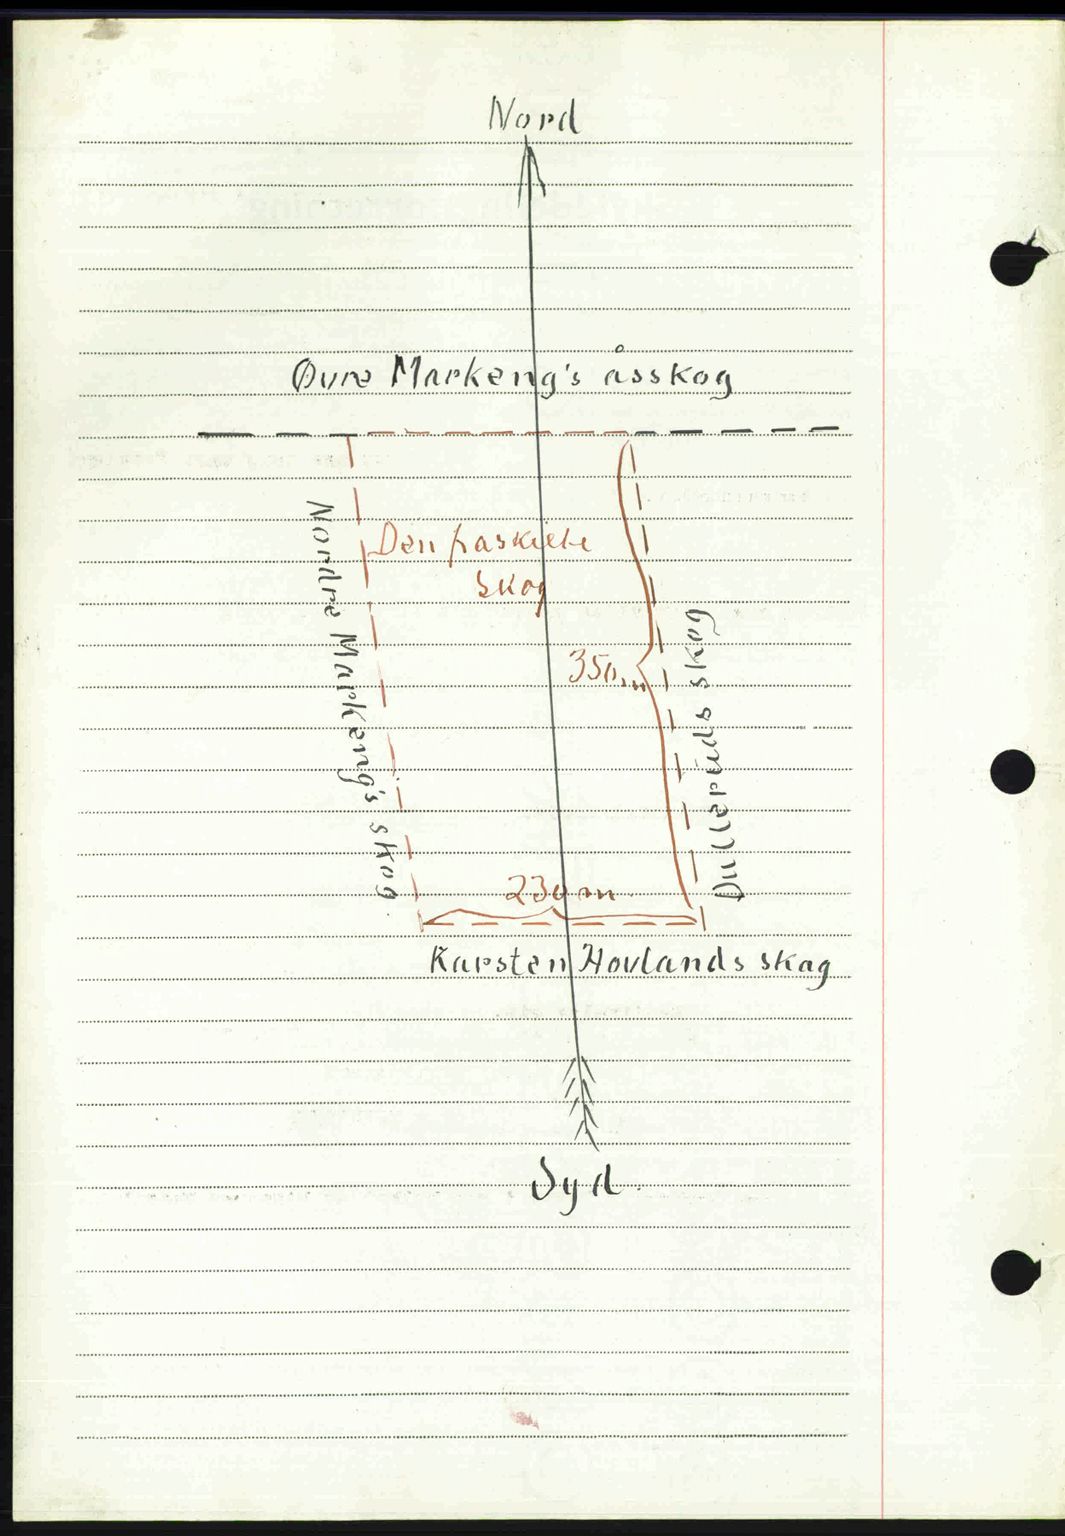 Nord
Øvre Markeng's åsskog
Nordre Markeng's skog
Den fraskilte
skog
350 m
Dullerüds skog
230 m.
Karsten Hovlands skog
Syd.